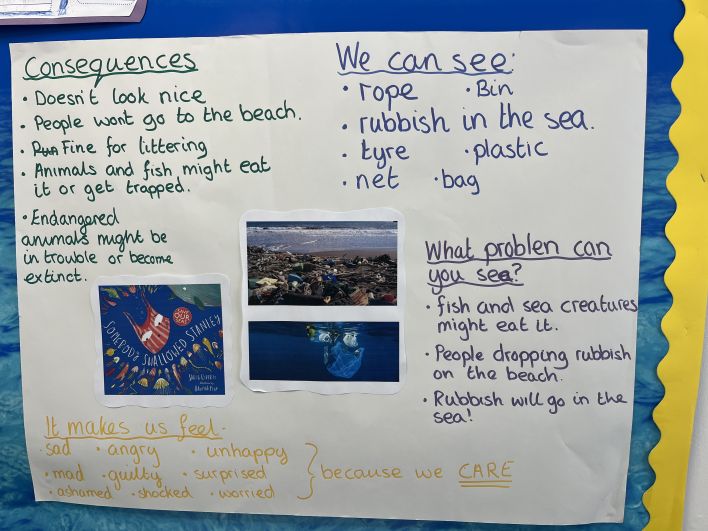 Consequences
• Doesn't look nice
• People wont go to the beach.
• Fine for littering
• Animals and fish might eat
it or get trapped.
• Endangered
animals might be
in trouble or become
extinct.
We can see:
• rope • Bin
• rubbish in the sea.
• tyre • plastic
• net • bag
What problem can
you see?
• fish and sea creatures
might eat it.
• People dropping rubbish
on the beach.
• Rubbish will go in the
sea!
SOMEBODY SWALLOWED STANLEY
It makes us feel.
• sad • angry • unhappy
• mad • guilty • surprised
• ashamed • shocked • worried
because we CARE